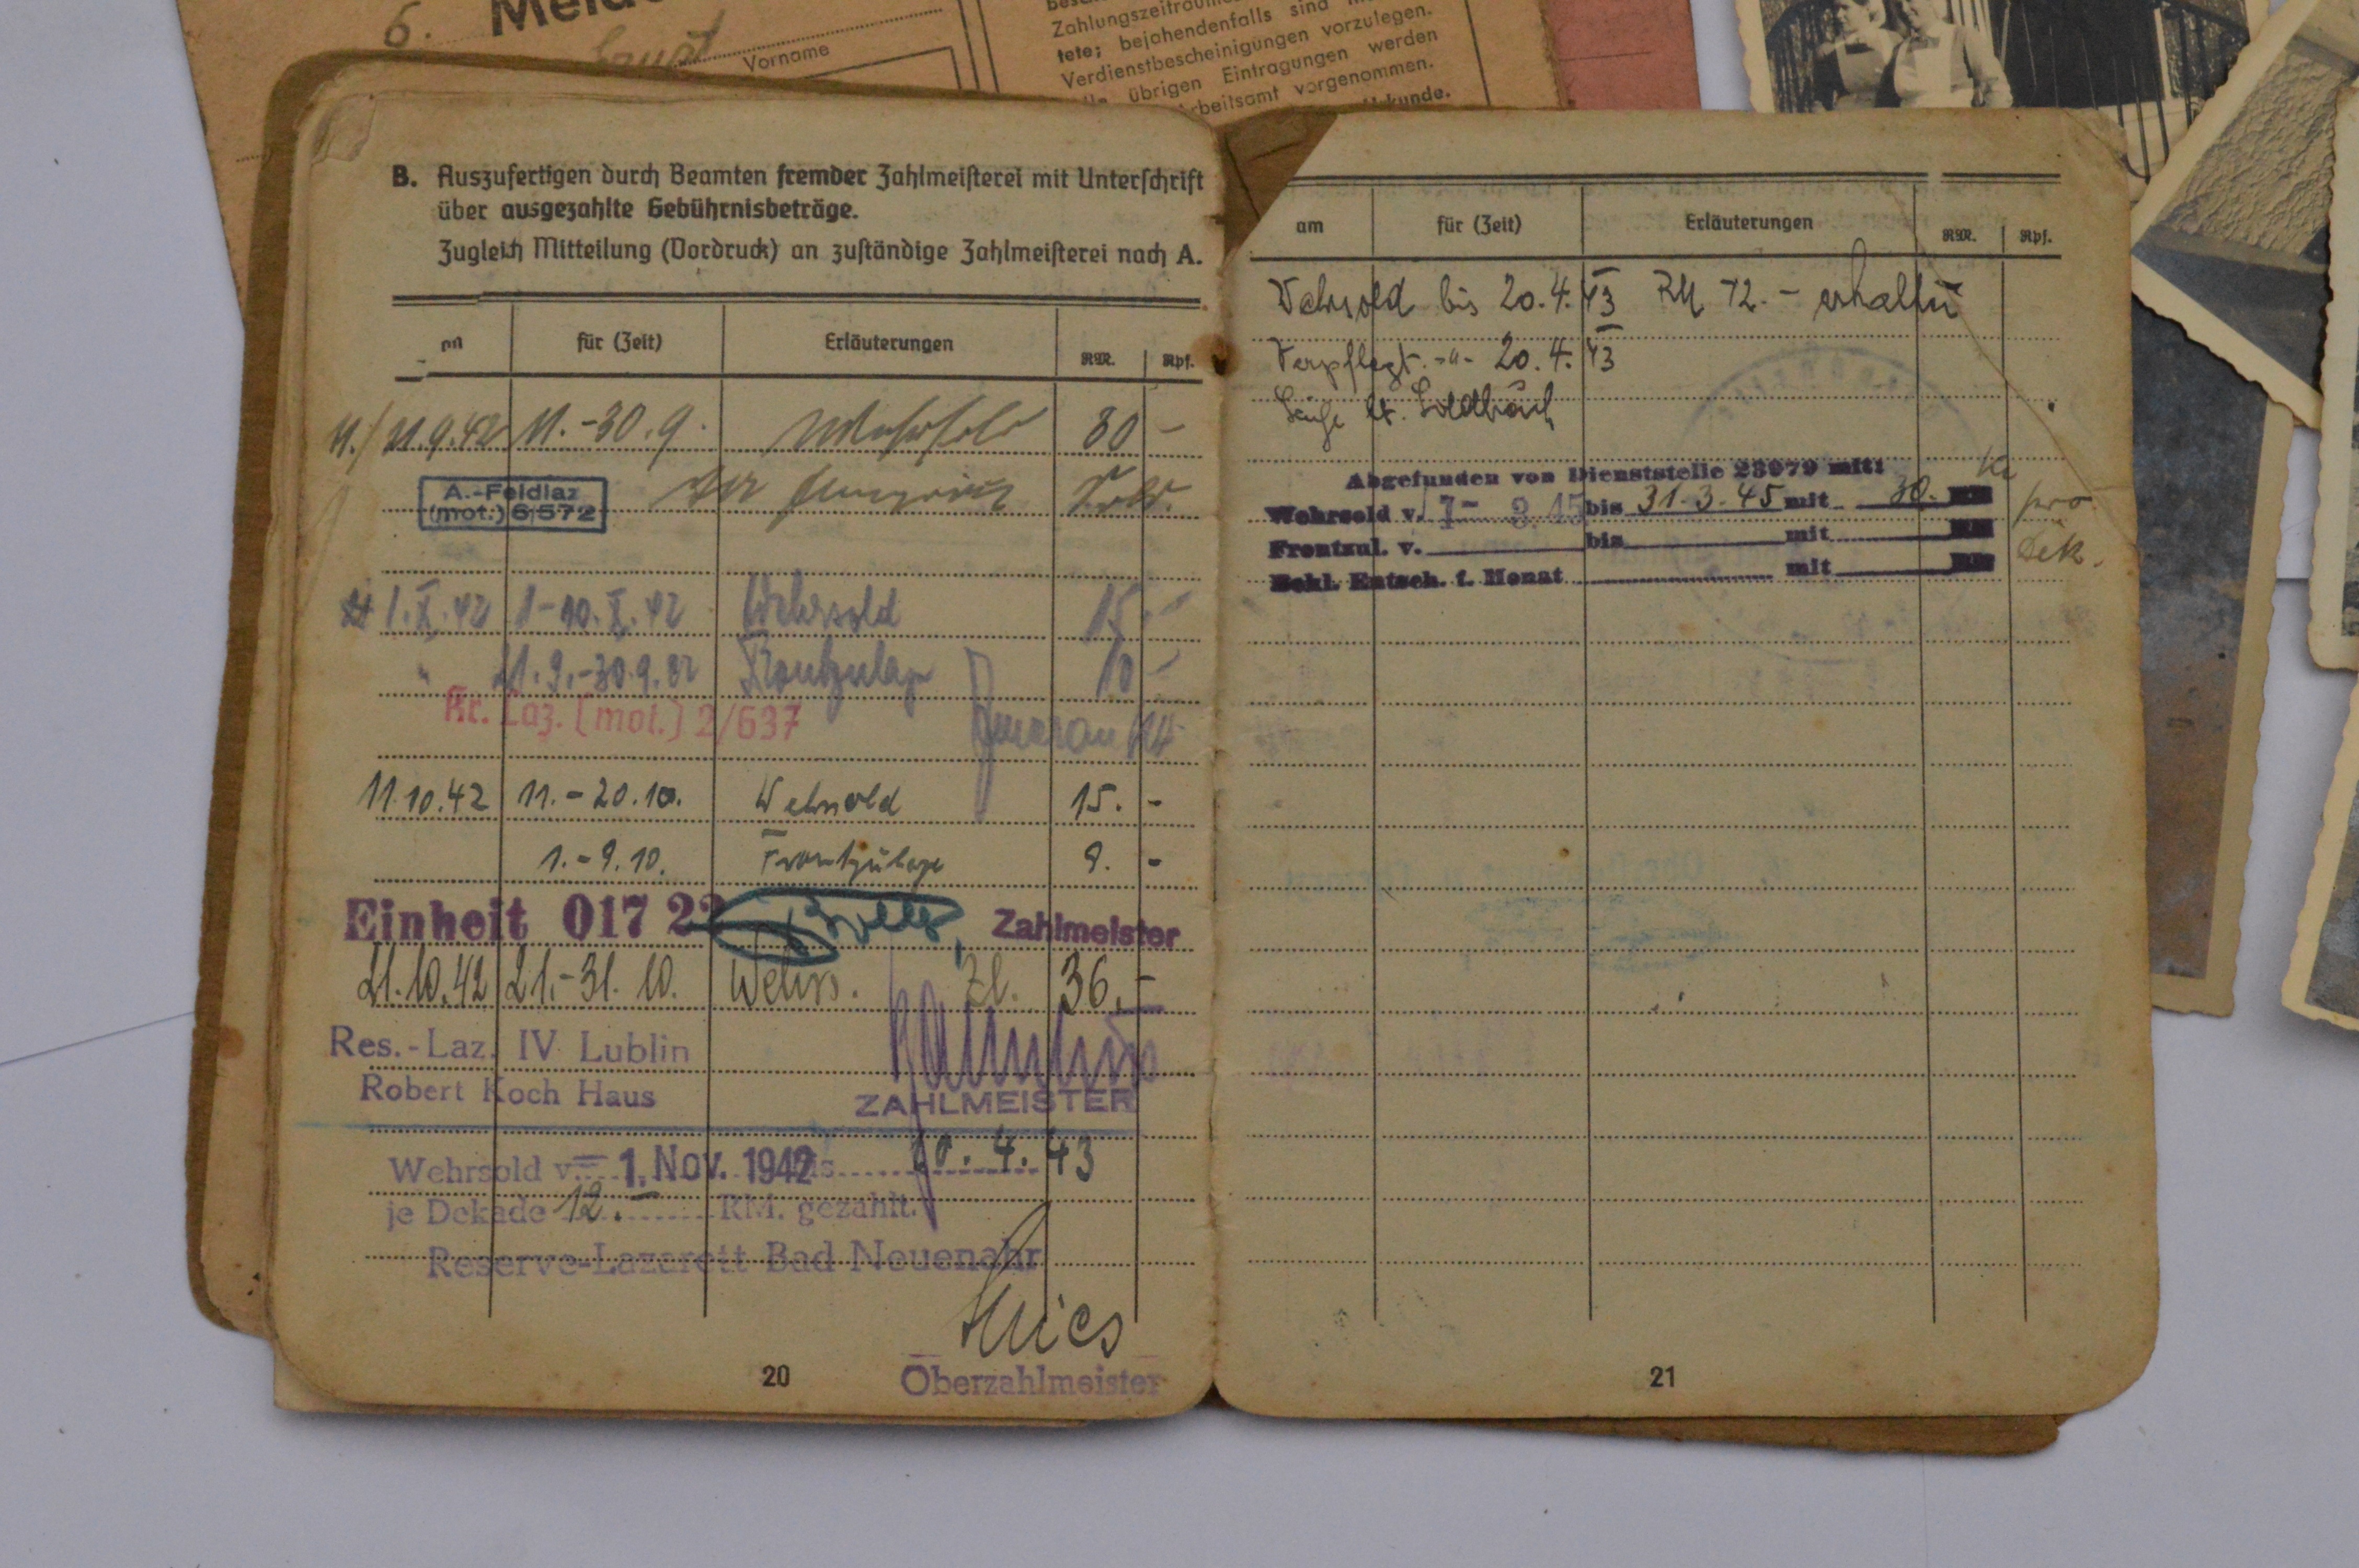 6. Meld
Vorname
Zahlungszeitraum
tete; bejahendenfalls sind
Verdienstbescheinigungen vorzulegen.
übrigen Eintragungen werden
Arbeitsamt vorgenommen.
B. Auszufertigen durch Beamten fremder Zahlmeisterei mit Unterschrift
über ausgezahlte Gebührnisbeträge.
Zugleich Mitteilung (Vordruck) an zuständige Zahlmeisterei nach A.
für (Zeit) Erläuterungen RM. Rpf.
11.9.42 11.-30.9. Wehrsold 30 -
A.-Feldlaz
(mot.) 6/572
1.X.42 1-10.X.42 Wehrsold 15.-
" 21.9.-30.9.42 Frontzulage 10 -
Kr. Laz. (mot.) 2/637
11.10.42 11.-20.10. Wehrsold 15. -
1.-9.10. Frontzulage 9. -
Einheit 017 22 Zahlmeister
21.10.42 21.-31.10. Wehrs. Zl. 36.-
Res.-Laz. IV Lublin
Robert Koch Haus
ZAHLMEISTER
Wehrsold v. - 1. Nov. 1942 bis 20.4.43
je Dekade 12.- RM. gezahlt.
Reserve-Lazarett Bad Neuenahr
Oberzahlmeister
20
am für (Zeit) Erläuterungen RM. Rpf.
Wehrsold bis 20.4.43 RM 72.- erhalten
Verpflegt -"- 20.4.43
Abgefunden von Dienststelle 23079 mit:
Wehrsold v. bis 31.3.45 mit 30. RM pro
Frontzul. v. bis mit RM Dek.
Bekl. Entsch. f. Monat mit RM
21